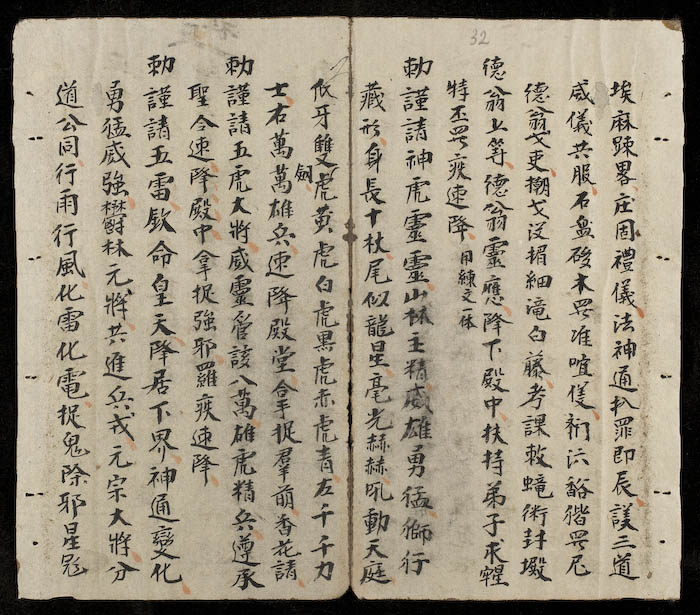 埃麻踈畧庄固禮儀法神通扒罪即辰護三道
威儀共服石盘破木罢准喧術沉豁罢尼
德翁戈吏擲戈沒楣細滝白藤考課敕術封
德翁上等德翁靈應降下殿中扶持弟子求
特丕罢疾速降 用練文一体
勅謹請神虎靈靈山林王精威雄勇猛獅行
藏形身長十杖尾似龍星毫光赫赫吼動天庭
牙雙劔虎黄虎白虎黑虎赤虎青左千千力
士右萬萬雄兵速降殿堂拿捉羣崩香花請
勅謹請五虎大將威靈管該八萬雄虎精兵遵承
聖令速降殿中拿捉強邪羅疾速降
勅謹請五雷欽命皇天降居下界神通變化
勇猛威強欝林元將共進兵戎元宗大將分
道公同行雨行風化雷化電捉鬼除邪星